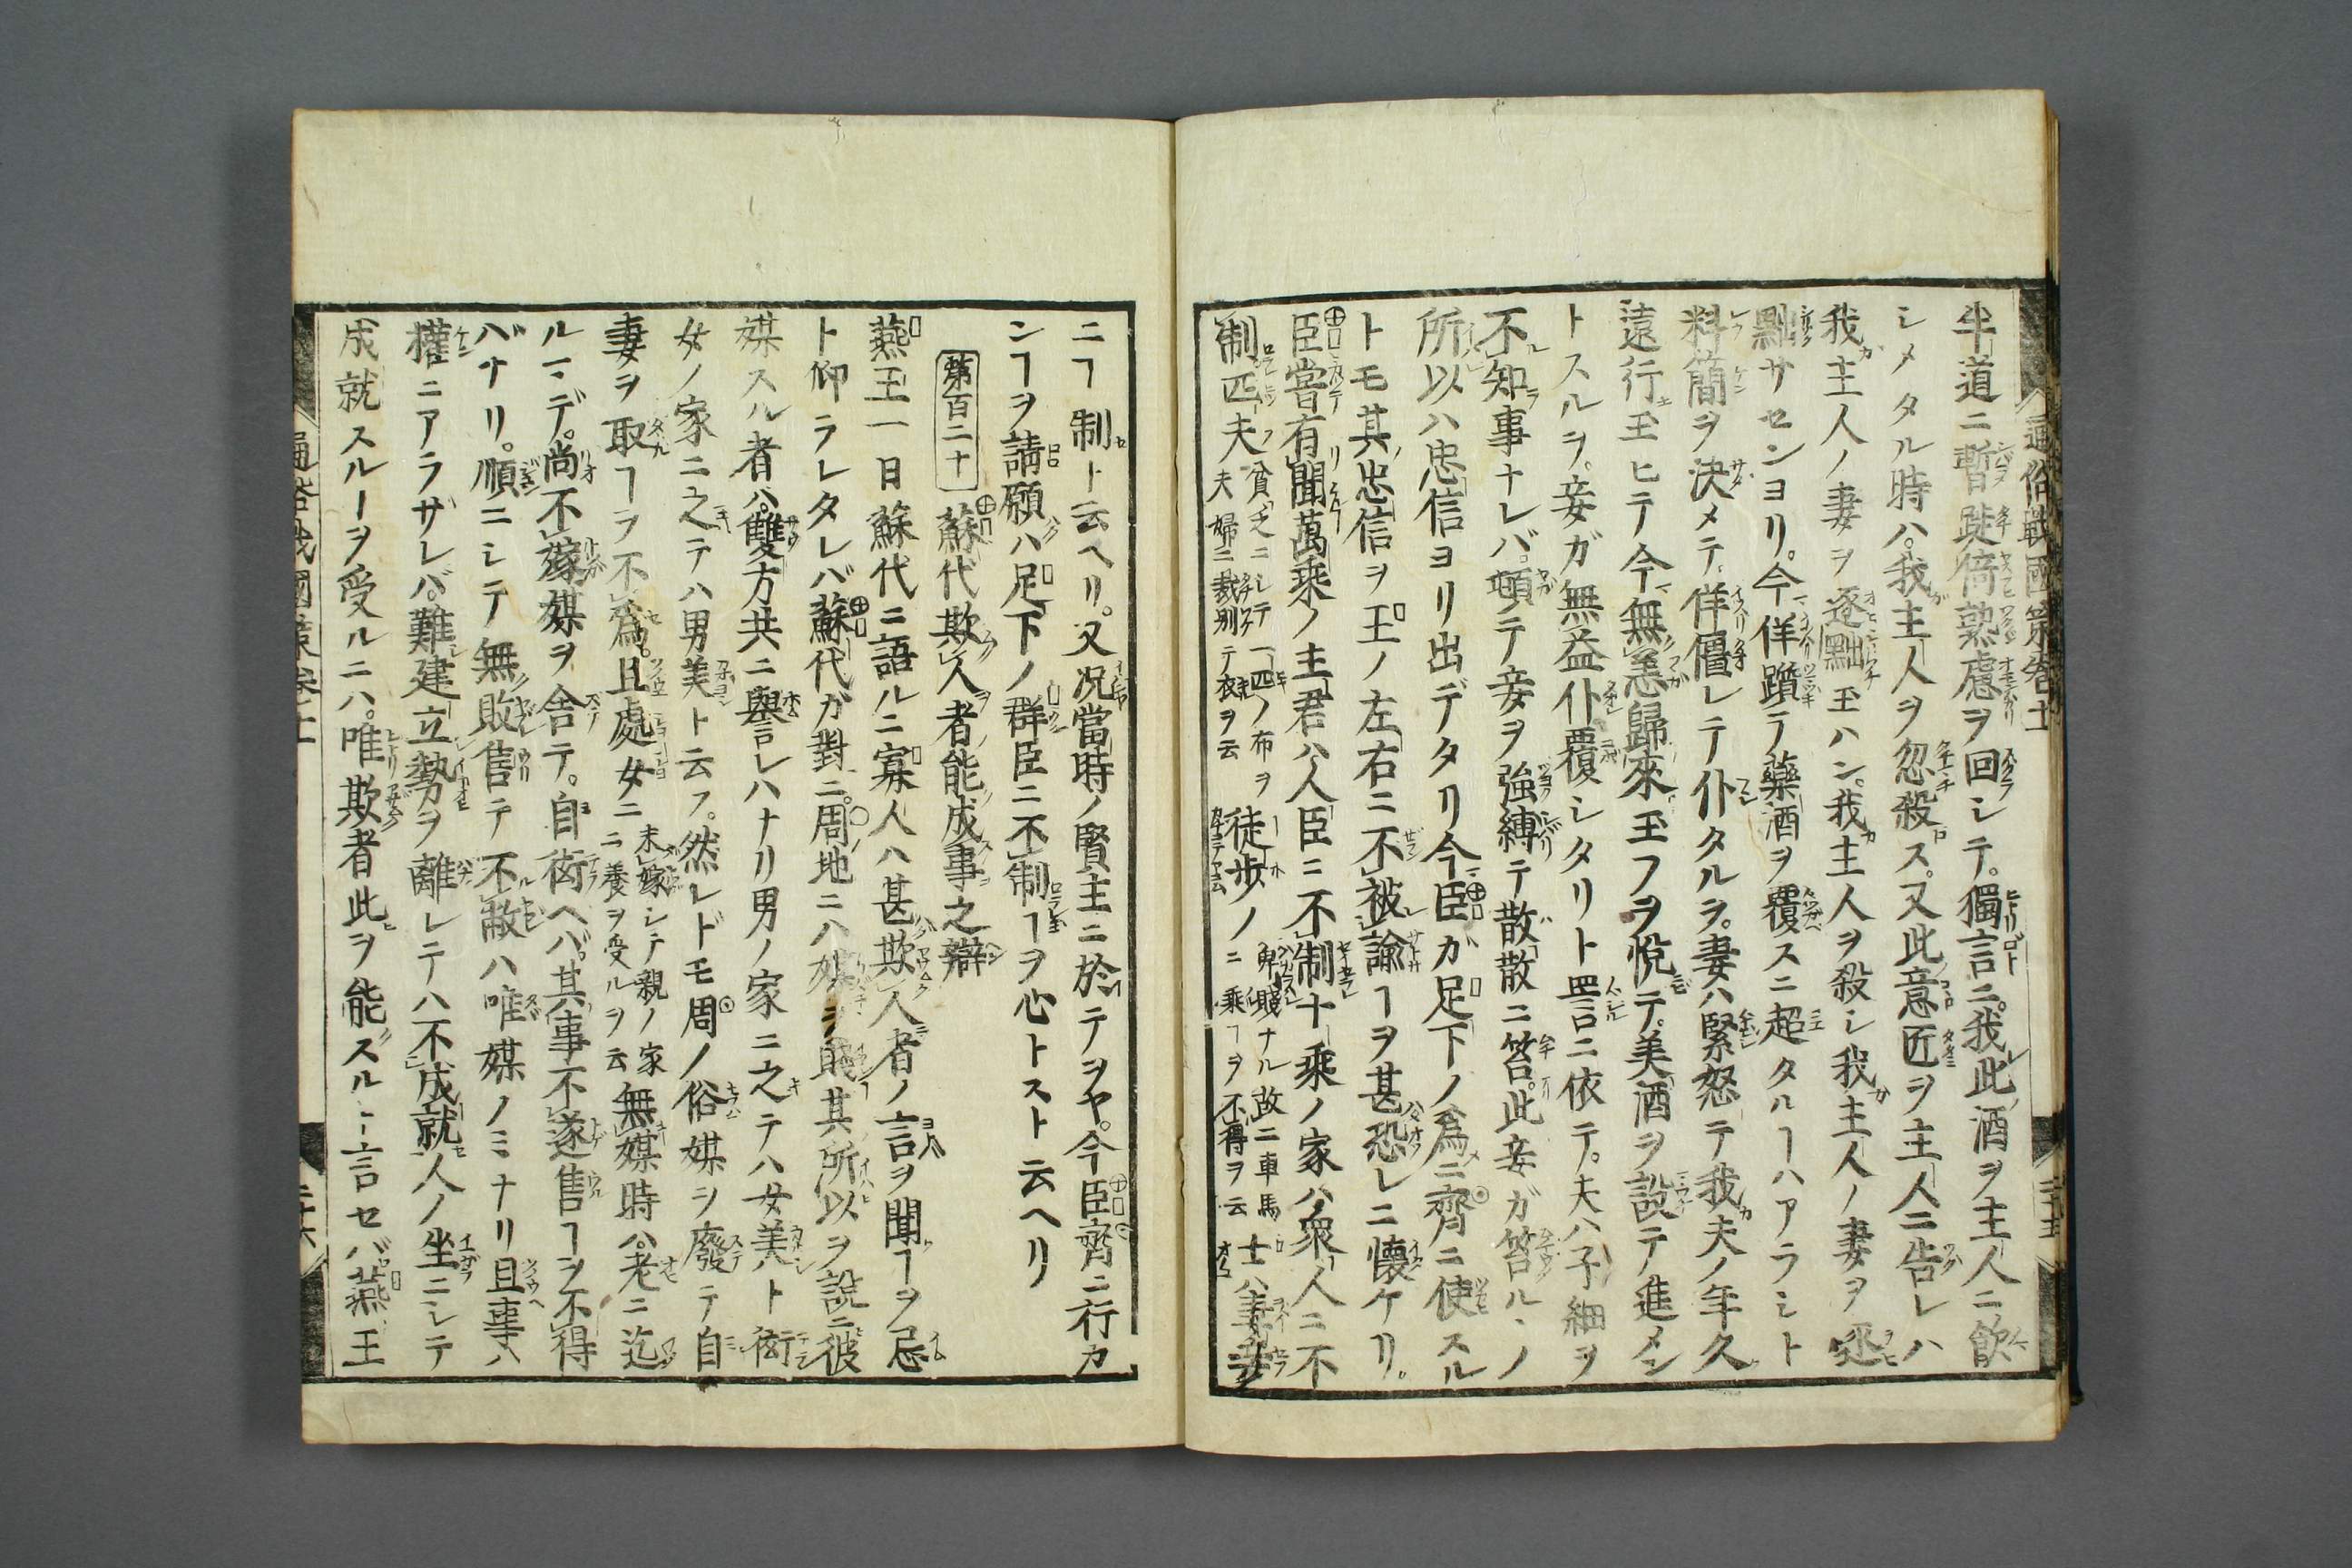 通俗戰國策卷十
半道ニ暫蹉倚熟慮ヲ回シテ。獨言ニ。我此酒ヲ主人ニ飮
シメタル時ハ。我主人ヲ忽殺ス。又此意匠ヲ主人ニ告レハ
我主人ノ妻ヲ逐黜玉ハン。我主人ヲ殺シ我主人ノ妻ヲ
黜サセンヨリ。今佯躓テ藥酒ヲ覆スニ超タルヿハアラシト
料簡ヲ決メテ。佯僵レテ仆タルヲ。妻ハ緊怒テ我夫ノ年久
遠行玉ヒテ今無恙歸來玉フヲ悅テ。美酒ヲ設テ進メン
トスルヲ。妾ガ無益仆覆シタリト詈ニ依テ。夫ハ子細ヲ
不知事ナレバ。頓テ妾ヲ強縛テ散散ニ笞。此妾ガ笞ルヽノ
所以ハ忠信ヨリ出デタリ今臣ガ足下ノ爲ニ齊ニ使スル
トモ其忠信ヲ王ノ左右ニ不被諭ヿヲ甚恐レニ懷ケリ。
臣嘗有聞萬乘ノ主君ハ人臣ニ不制十乘ノ家ハ衆人ニ不
制匹夫貧乏ニシテ一匹ノ布ヲ夫婦ニ裁別テ衣ヲ云徒步ノ卑賤ナル故ニ車馬ニ乘ヿヲ不得ヲ云士ハ妻妾
ニヿ制ト云ヘリ。又況當時ノ賢主ニ於テヲヤ。今臣齊ニ行カ
ンヿヲ請願ハ足下ノ群臣ニ不制ヿヲ心トスト云ヘリ
第百二十 蘇代欺人者能成事之辯
燕王一日蘇代ニ語ルニ寡人ハ甚欺人者ノ言ヲ聞ヿヲ忌
ト仰ラレタレバ蘇代ガ對ニ。周地ニハ媒ヲ賤其所以ヲ說ニ彼
媒スル者ハ。雙方共ニ譽レハナリ男ノ家ニ之テハ女美ト衒
女ノ家ニ之テハ男美ト云フ。然レドモ周ノ俗媒ヲ廢テ自
妻ヲ取ヿヲ不爲。且處女ニ未嫁シテ親ノ家ニ養ヲ受ルヲ云無媒時ハ。老ニ迄
ルマデ。尚不嫁媒ヲ舍テ。自衒ヘバ。其事不遂售ヿヲ不得
バナリ。順ニシテ無敗售テ不敝ハ唯媒ノミナリ且事ハ
權ニアラザレバ。難建立勢ヲ離レテハ不成就人ノ坐ニシテ
成就スルヿヲ受ルニハ。唯欺者此ヲ能スルト言セバ燕王